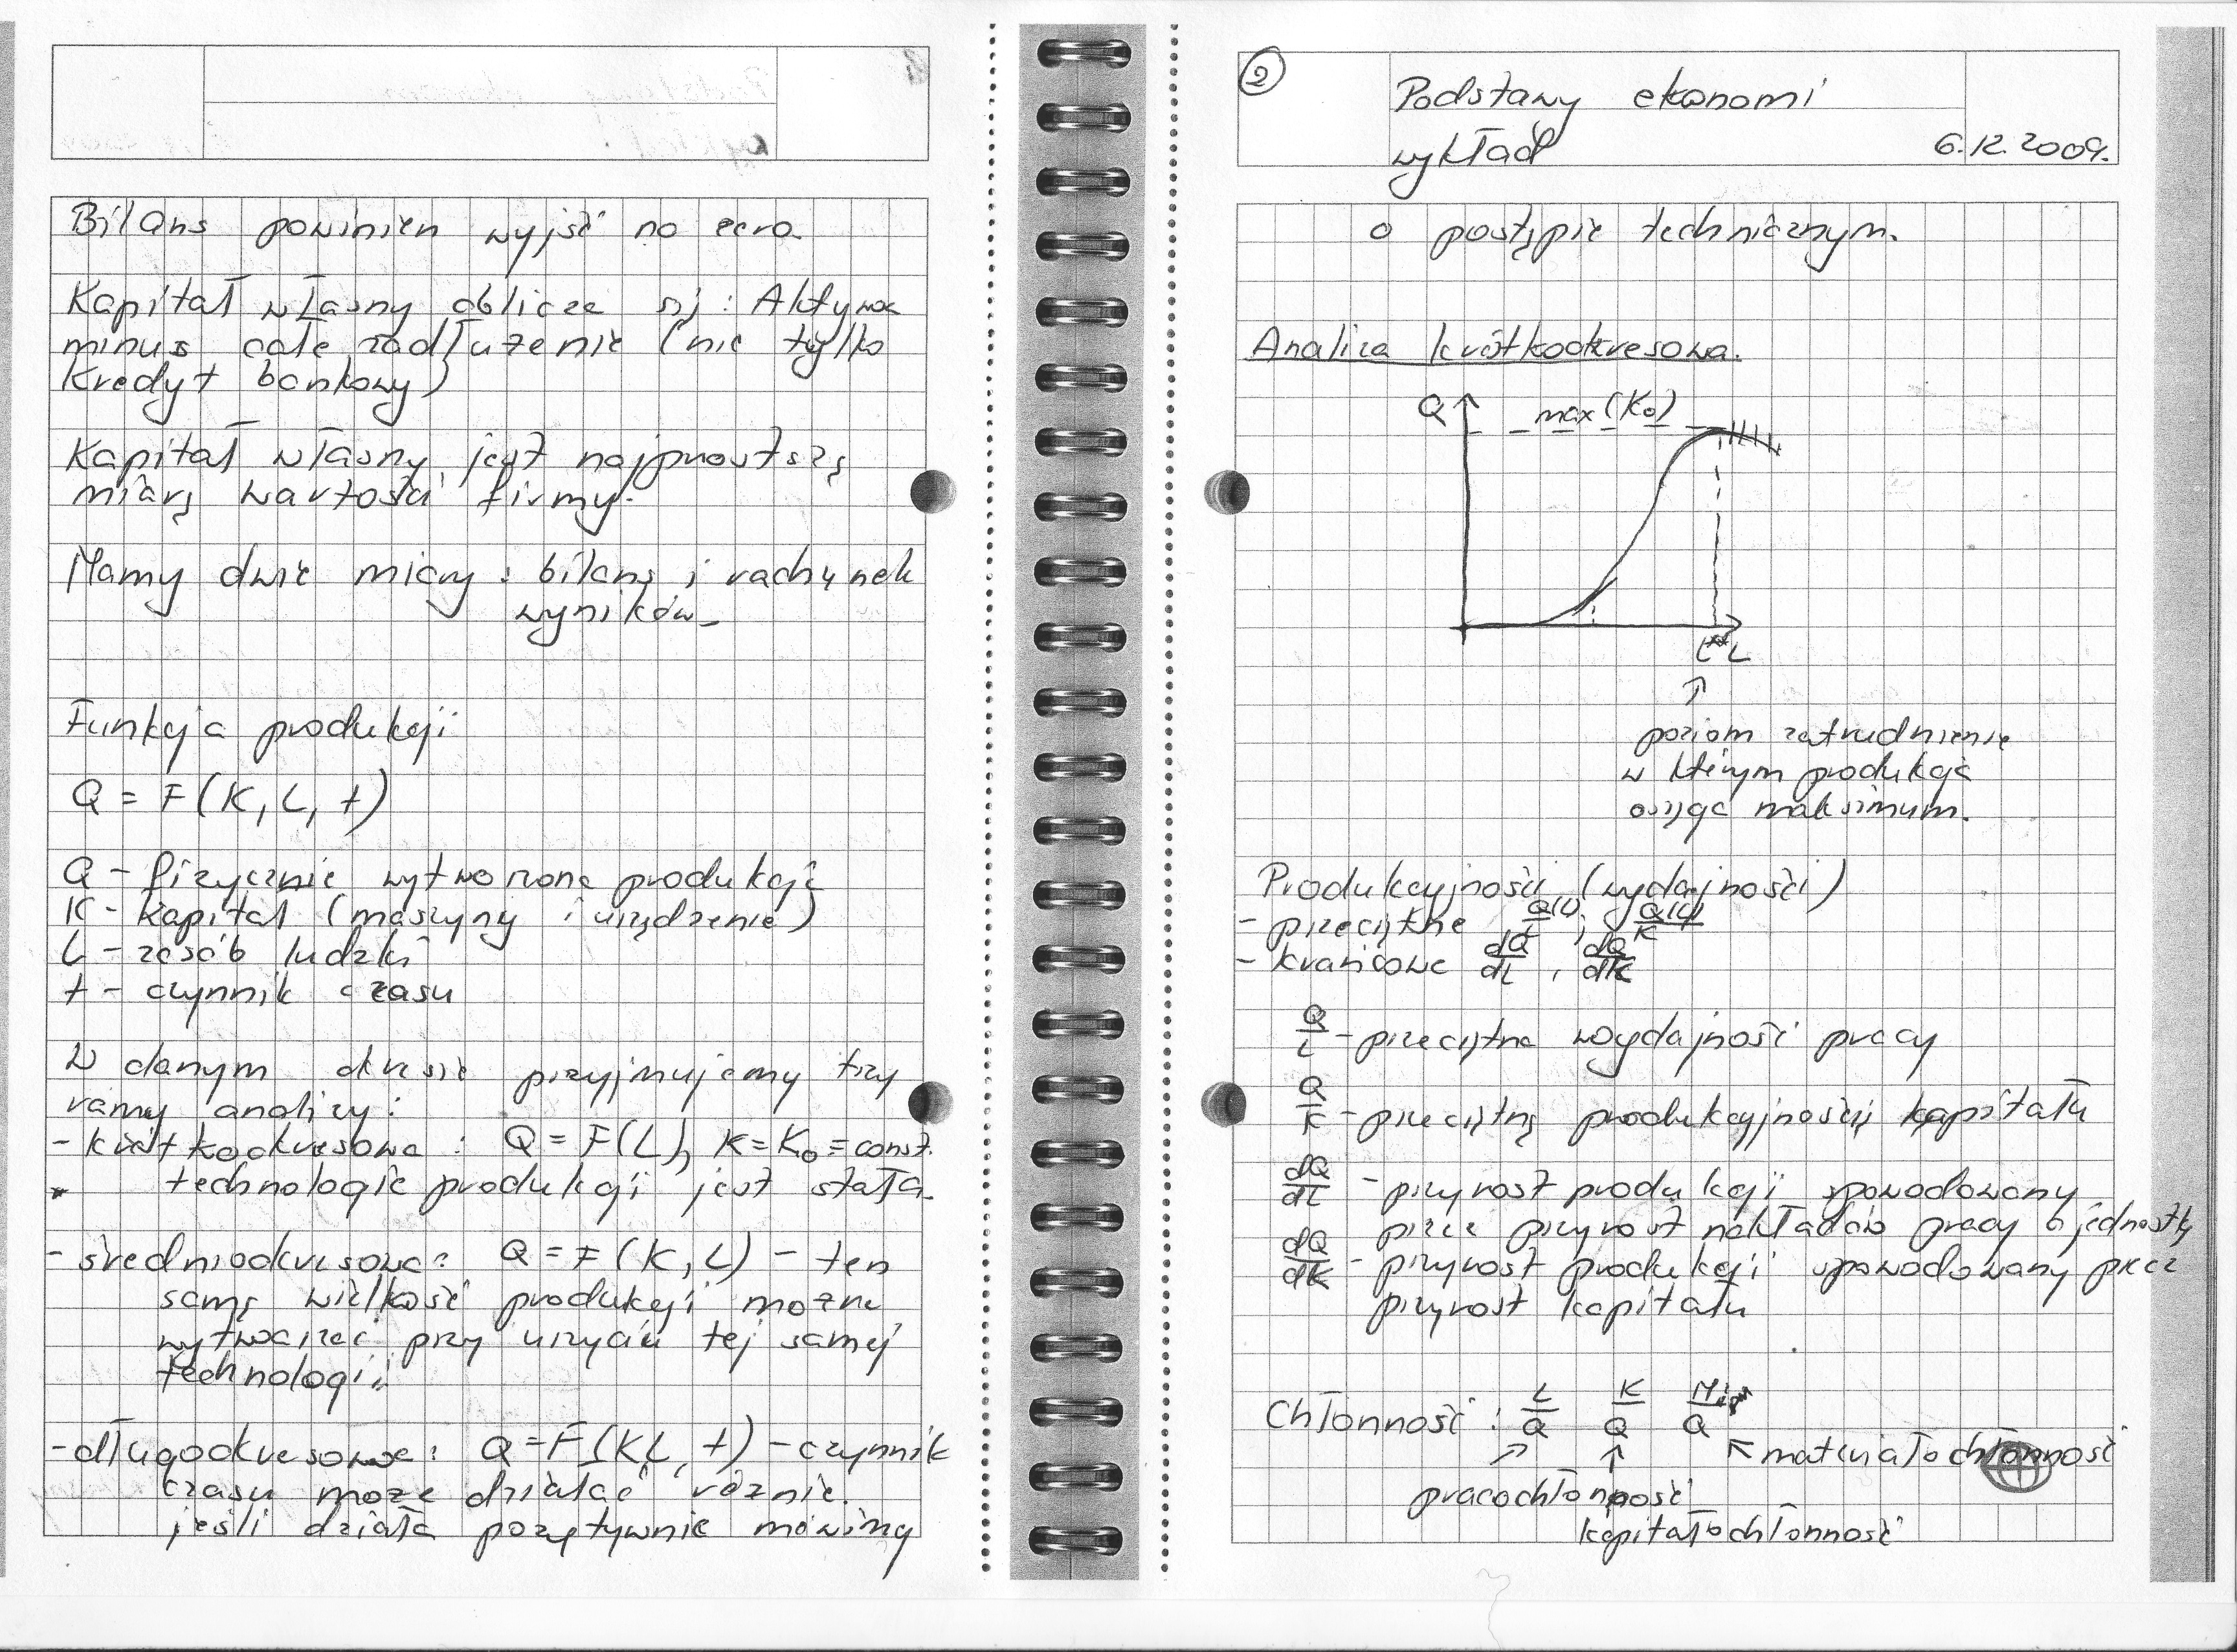 Bilans powinien wyjść na zero.
Kapitał własny oblicza się: Aktywa
minus całe zadłużenie (nie tylko
kredyt bankowy)
Kapitał własny jest najprostszą
miarą wartości firmy.
Mamy dwie miary: bilans i rachunek
wyników.
Funkcja produkcji
Q = F(K, L, t)
Q - fizycznie wytworzona produkcja
K - kapitał (maszyny i urządzenie)
L - zasób ludzki
t - czynnik czasu
W danym okresie przyjmujemy trzy
ramy analizy:
- krótkookresowa: Q = F(L), K = K₀ = const.
technologia produkcji jest stała.
- średniookresowa: Q = F(K, L) - ten
samą wielkość produkcji można
wytwarzać przy użyciu tej samej
technologii
- długookresowa: Q = F(K, L, t) - czynnik
czasu może działać różnie.
jeśli działa pozytywnie mówimy
2
Podstawy ekonomi
wykład 6.12.2009.
o postępie technicznym.
Analiza krótkookresowa.
Q max (K₀)
L** L
poziom zatrudnienie
w którym produkcja
osiąga maksimum.
Produkcyjności (wydajności)
- przeciętne Q(L)/L, Q(K)/K
- krańcowe dQ/dL, dQ/dK
Q/L - przeciętna wydajność pracy
Q/K - przeciętną produkcyjnością kapitału
dQ/dL - przyrost produkcji spowodowany
przez przyrost nakładów pracy o jednostkę
dQ/dK - przyrost produkcji spowodowany przez
przyrost kapitału
Chłonność: L/Q K/Q M/Q
materiałochłonność
pracochłonność
kapitałochłonność